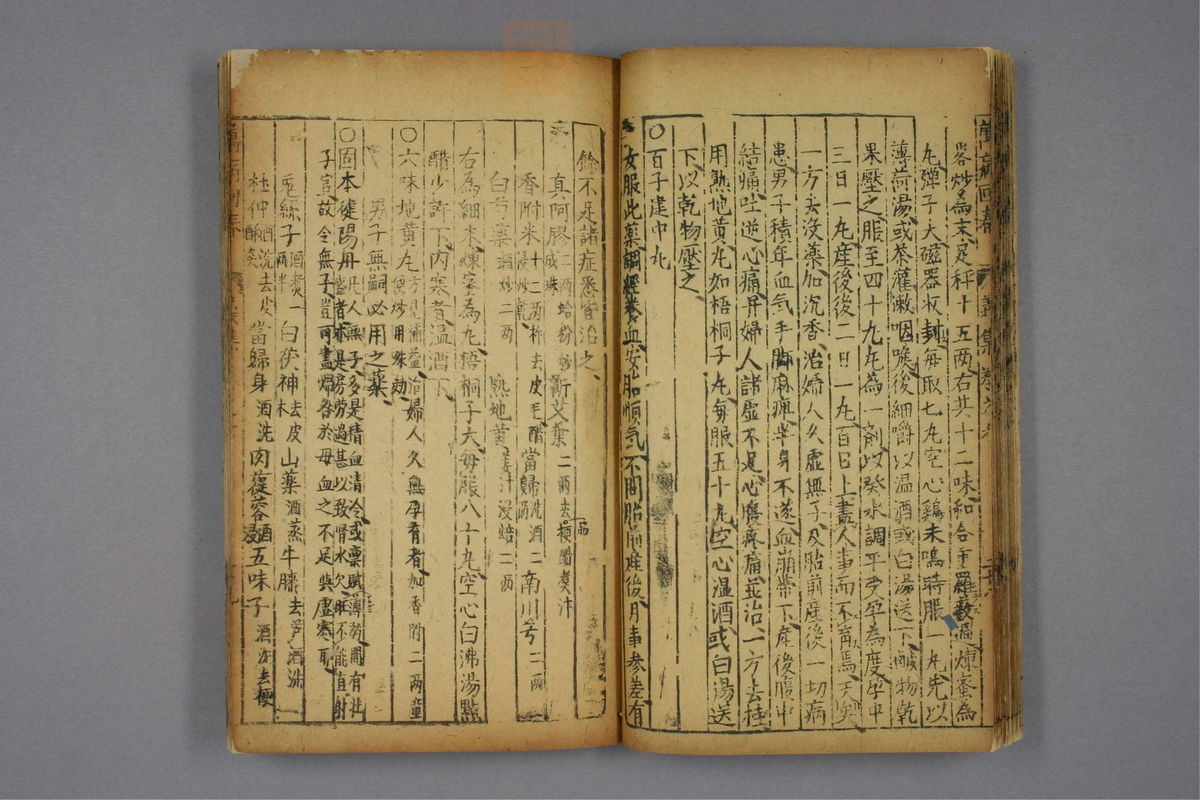 萬病回春
各炒為末足秤十五兩右共十二味和合重羅數過煉蜜為
丸彈子大磁器收封每取七丸空心鷄未鳴時服一丸先以
薄荷湯或茶灌漱咽喉後細嚼以温酒或白湯送下醎物乾
果壓之服至四十九丸為一劑以癸水調平受孕為度孕中
三日一丸産後後二日一丸百日上盡人事而不育焉天矣
一方去没藥加沉香治婦人久虚無子及胎前産後一切病
患男子積年血氣手脚麻痺半身不遂血崩帶下産後腹中
結痛吐逆心痛丹婦人諸虚不足心腹疼痛並治一方去桂
用熟地黄丸如梧桐子丸毎服五十丸空心温酒或白湯送
下以乾物壓之
○百子建中丸
女服此藥調經養血安胎順氣不問胎前産後月事参差有
餘不足諸症悉皆治之
真阿膠二兩蛤粉炒成珠 蘄艾葉二兩去梗醋煑
香附米十二兩杵去皮毛醋浸炒乾 當歸洗酒二兩 南川芎二兩
白芍藥酒炒二兩 熟地黄姜汁浸焙二兩
右為細末煉蜜為丸梧桐子大毎服八十丸空心白沸湯點
醋少許下内寒者温酒下
○六味地黄丸方見補益治婦人久無孕育者加香附二兩童便炒用殊効
男子無嗣必用之藥
○固本健陽丹凡人無子多是精血清冷或禀賦薄弱間有壯盛者亦是房勞過甚以致腎水欠旺不能直射
子宫故令無子豈可盡歸咎於母血之不足與虚寒耳
兎絲子酒煑一兩半 白茯神去皮木 山藥酒蒸 牛膝去芦酒洗
杜仲酒洗去皮酥炙 當歸身酒洗 肉蓯蓉酒浸 五味子酒洗去梗